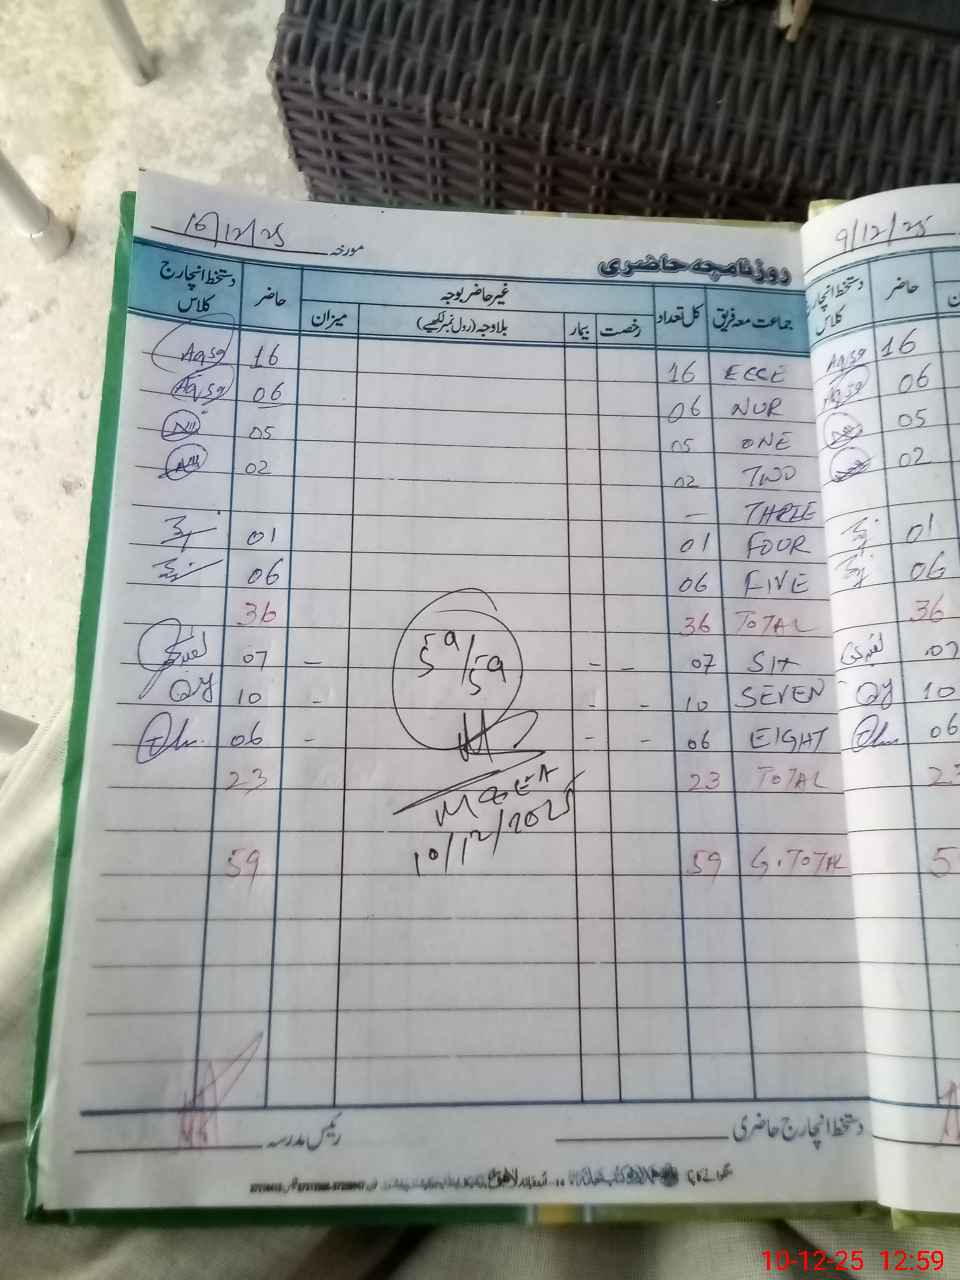 10/12/25 مورخہ
روزنامچہ حاضری
جماعت معہ فریق کل تعداد غیر حاضر بوجہ حاضر دستخط انچارج کلاس
رخصت بیمار بلاوجہ (رول نمبر لکھیے) میزان
ECCE 16 16 Aqsa
NUR 06 06 Aqsa
ONE 05 05
TWO 02 02
THREE –
FOUR 01 01
FIVE 06 06
TOTAL 36 36
SIX 07 - - – 07
SEVEN 10 - - - 10 QY
EIGHT 06 - - - 06
TOTAL 23 23
G.TOTAL 59 59
59/59
M&EA
10/12/2025
دستخط انچارج حاضری
رئیس مدرسہ
9/12/25
دستخط انچارج کلاس حاضر
Aqsa 16
Aqsa 06
05
02
01
06
36
07
QY 10
06
10-12-25 12:59